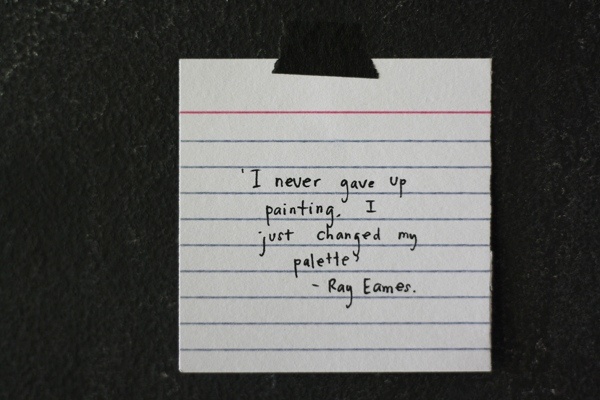 'I never gave up
painting, I
just changed my
palette'
- Ray Eames.